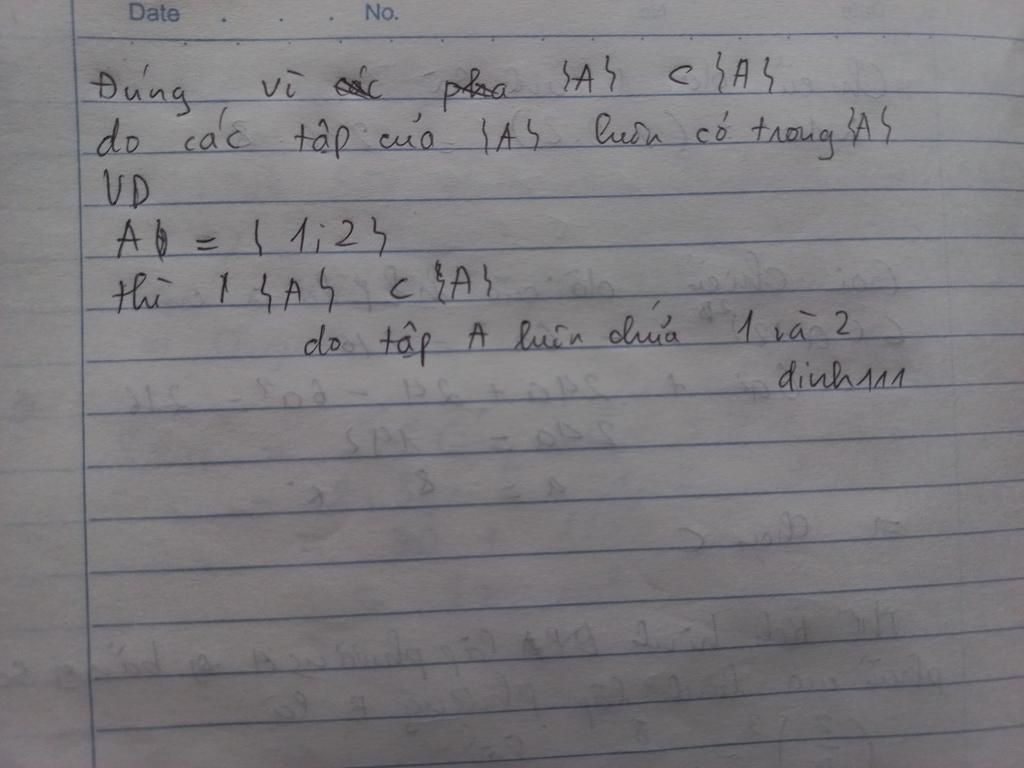 Date . . . No.
Đúng vì {A} ⊂ {A}
do các tập của {A} luôn có trong {A}
VD
A = { 1; 2 }
thì {A} ⊂ {A}
do tập A luôn chứa 1 và 2
dinh111